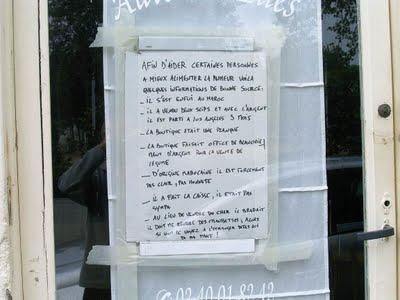 AFIN D'AIDER CERTAINES PERSONNES
A MIEUX ALIMENTER LA RUMEUR VOILA
QUELQUES INFORMATIONS DE BONNE SOURCE:
_ IL S'EST ENFUI AU MAROC
_ IL A VENDU DEUX SLIPS ET AVEC L'ARGENT
IL EST PARTI A LOS ANGELES 3 MOIS
_ LA BOUTIQUE ETAIT UNE PLANQUE
_ LA BOUTIQUE FAISAIT OFFICE DE
D'ARGENT POUR LA VENTE DE
LEGUME
_ D'ORIGINE MAROCAINE IL EST FORCEMENT
PAS CLAIR, PAS HONNETE
_ IL A FAIT LA CAISSE, IL ETAIT PAS
SYMPA
_ AU LIEU DE VENDRE DU CHER IL BRADAIT
IL DOIT SE
02 40 01 82 12